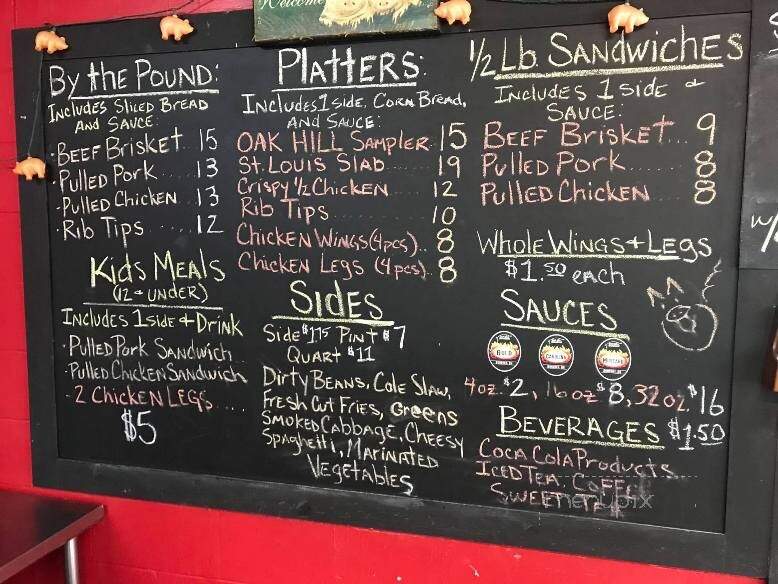 Welcome
By the Pound:
Includes Sliced Bread
And Sauce:
·Beef Brisket.. 15
·Pulled Pork 13
·Pulled Chicken .. 13
·Rib Tips ..... 12
Kids Meals
(12 + under)
Includes 1 side + Drink
·Pulled Pork Sandwich
·Pulled Chicken Sandwich
·2 Chicken Legs.....
$5
Platters:
Includes 1 side, Corn Bread,
And Sauce:
Oak Hill Sampler. 15
St. Louis Slab ..... 19
Crispy 1/2 Chicken .... 12
Rib Tips ........ 10
Chicken Wings (4pcs).. 8
Chicken Legs (4pcs).. 8
Sides
Side $1.75 Pint $7
Quart $11
Dirty Beans, Cole Slaw,
Fresh Cut Fries, Greens
Smoked Cabbage, Cheesy
Spaghetti, Marinated
Vegetables
1/2 Lb. Sandwiches
Includes 1 side +
Sauce:
Beef Brisket... 9
Pulled Pork...... 8
Pulled Chicken .... 8
Whole Wings + Legs
$1.50 each
Sauces
Bold
Carolina
Mustard
4oz. $2, 16oz $8, 32oz. $16
Beverages $1.50
Coca Cola Products
Iced Tea, Coffee
Sweet Tea
menupix
w/